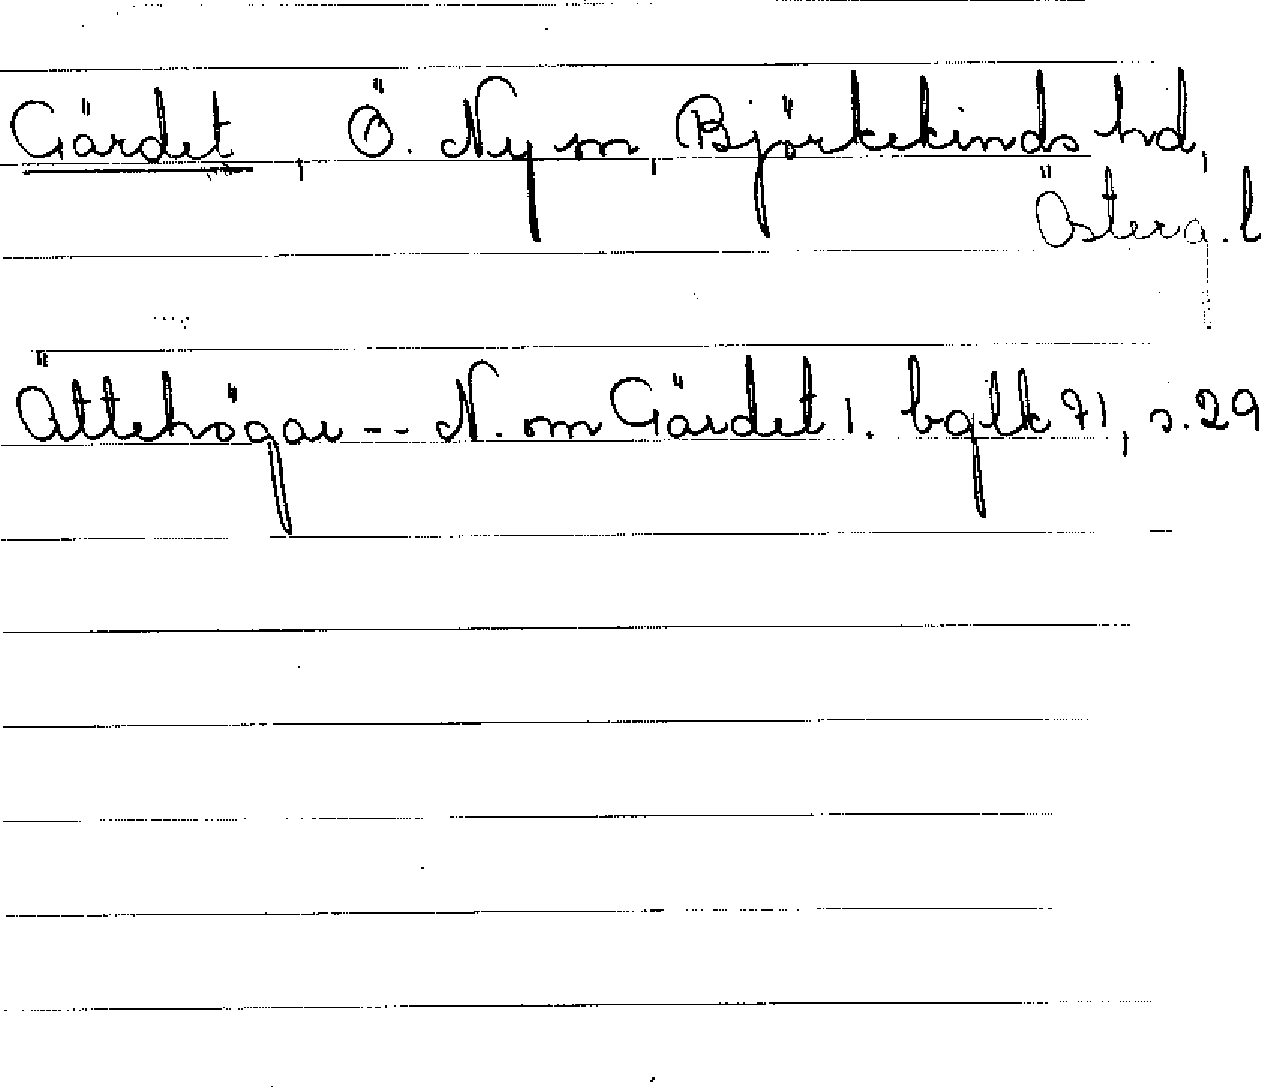 Gärdet, Ö. Ny sn, Björkekinds hd,
Österg. l
Ättehögar -- N. om Gärdet 1. bglk 71, s. 29